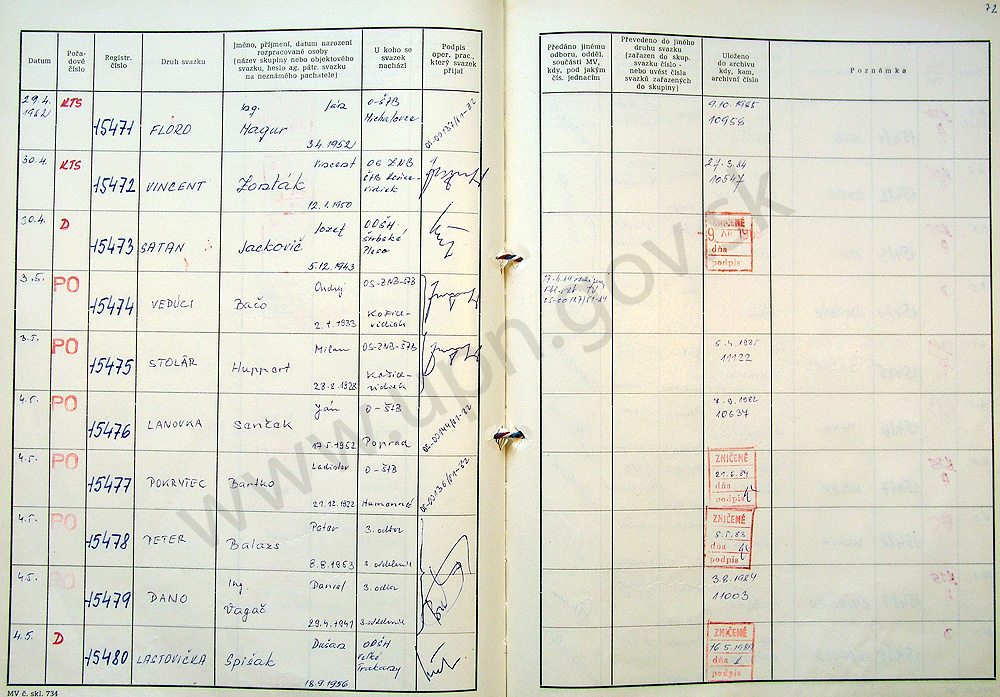 72
Datum
Pořa-
dové
číslo
Registr.
číslo
Druh svazku
Jméno, příjmení, datum narození
rozpracované osoby
(název skupiny nebo objektového
svazku, heslo ag. pátr. svazku
na neznámého pachatele)
U koho se
svazek
nachází
Podpis
oper. prac.,
který svazek
přijal
Předáno jinému
odboru, odděl.
součásti MV,
kdy, pod jakým
čís. jednacím
Převedeno do jiného
druhu svazku
(zařazen do skup.
svazku číslo -
nebo uvést čísla
svazků zařazených
do skupiny)
Uloženo
do archivu
kdy, kam,
archivní číslo
Poznámka
29.4.
1982 KTS 15471 FLÓRO Ing. Ján
Magur
3.4.1952
O-ŠTB
Michalovce
9.10.1985
10958
30.4. KTS 15472 VINCENT Vincent
Zosták
12.1.1950
OS ZNB
ŠTB Košice-
vidiek
27.3.84
10547
30.4. D 15473 SATAN Jozef
Jackovič
5.12.1943
ODŠH
Štrbské
Pleso
ZNIČENÉ
dňa
podpis
3.5. PO 15474 VEDÚCI Ondrej
Bačo
2.1.1933
OS-ZNB-ŠTB
Košice-
vidiek
3.5. PO 15475 STOLÁR Milan
Huppert
28.8.1928
OS-ZNB-ŠTB
Košice-
vidiek
5.4.1985
11122
4.5. PO 15476 LANOVKA Ján
Senček
17.5.1952
O-ŠTB
Poprad
10637
4.5. PO 15477 POKRYTEC Ladislav
Bartko
21.12.1922
O-ŠTB
Humenné
ZNIČENÉ
21.6.84
dňa
podpis
4.5. PO 15478 PETER Peter
Balazs
8.8.1953
3. odbor
3. oddelenie
ZNIČENÉ
5.5.83
dňa
podpis
4.5. PO 15479 DANO Ing. Daniel
Vagač
29.4.1941
3. odbor
3. oddelenie
3.8.1984
11003
4.5. D 15480 LASTOVIČKA Dušan
Spišák
18.9.1956
ODŠH
Veľké
Trakany
ZNIČENÉ
dňa
podpis
MV č. skl. 734
www.upn.gov.sk